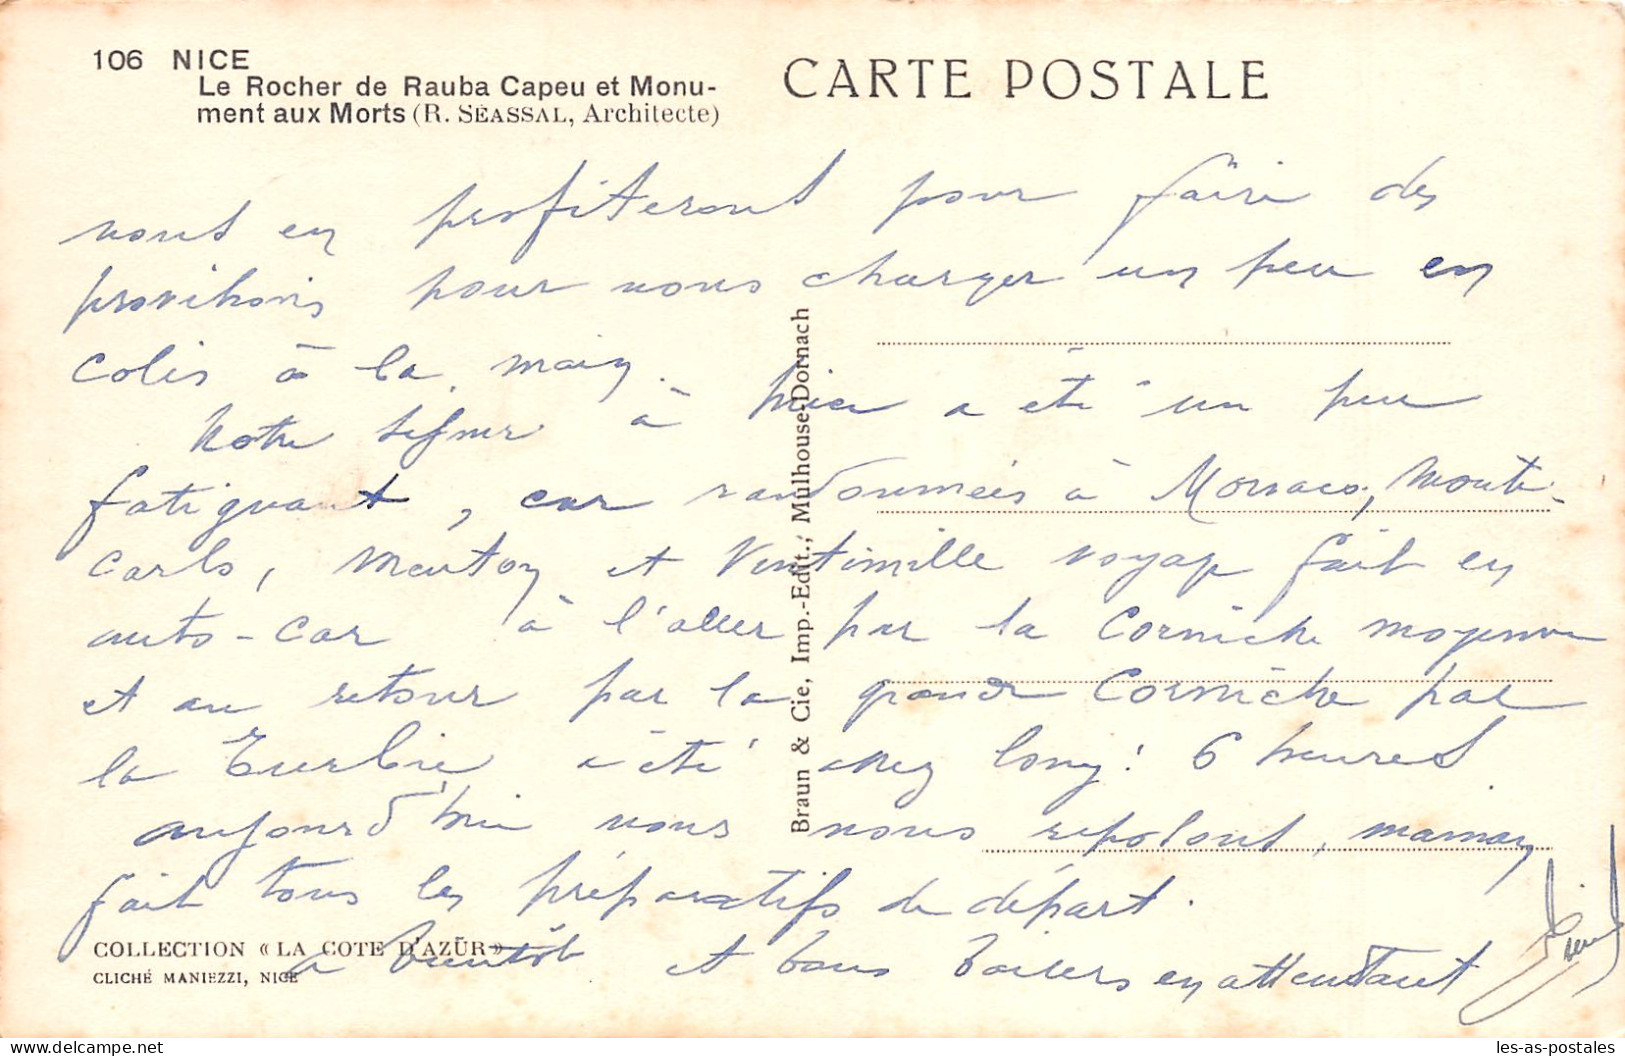 106 NICE
Le Rocher de Rauba Capeu et Monu-
ment aux Morts (R. SÉASSAL, Architecte)
CARTE POSTALE
nous en profiterons pour faire des
provisions pour nous charger un peu en
colis à la main.
Notre séjour à Nice a été un peu
fatiguant, car randonnées à Monaco, Monte-
Carlo, Menton et Vintimille voyage fait en
auto-car à l'aller par la Corniche moyenne
et au retour par la grande Corniche par
la Turbie a été assez long: 6 heures
aujourd'hui nous nous reposons, maman
fait tous les préparatifs de départ.
a bientôt et bons baisers en attendant
Braun & Cie, Imp.-Edit., Mulhouse-Dornach
COLLECTION « LA COTE D'AZUR »
CLICHÉ MANIEZZI, NICE
les-as-postales